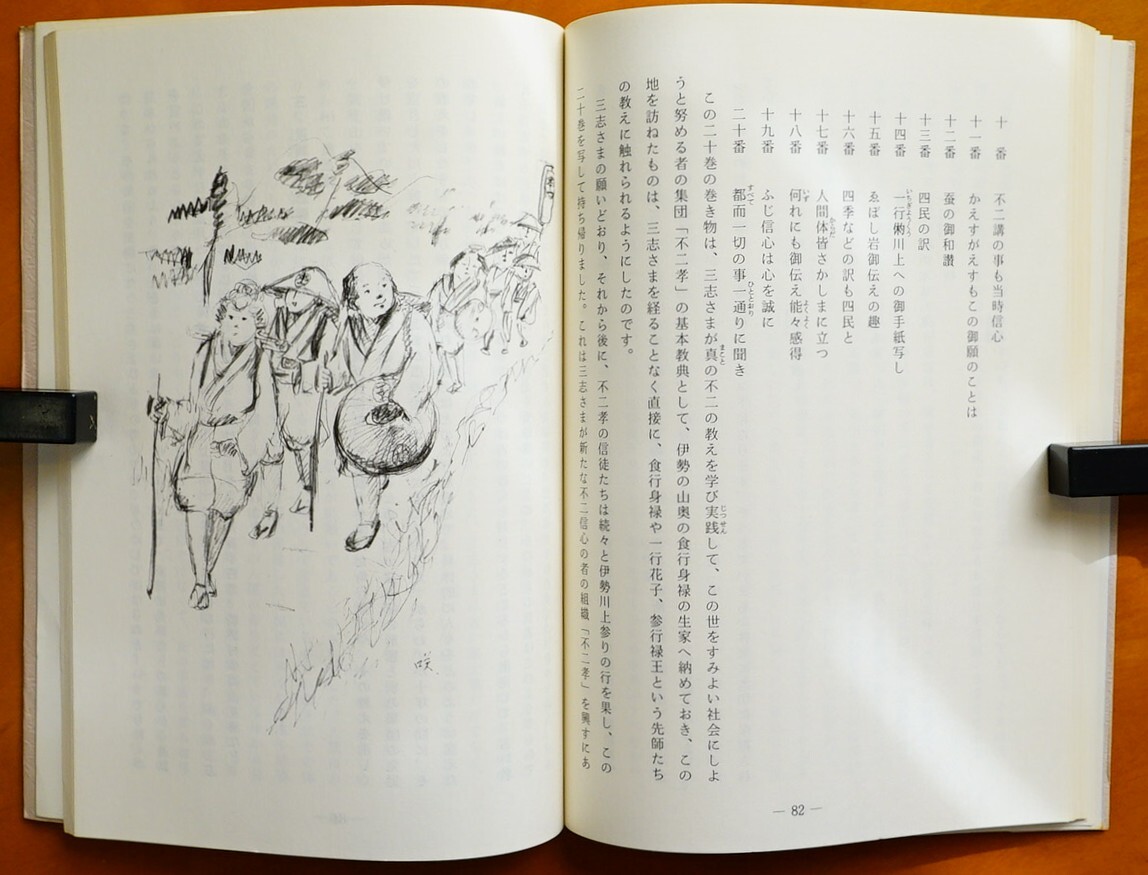 十番 不二講の事も当時信心
十一番 かえすがえすもこの御願のことは
十二番 蚕の御和讃
十三番 四民の訳
十四番 一行の川上への御手紙写し
十五番 ゑぼし岩御伝えの趣
十六番 四季などの訳も四民と
十七番 人間体皆さかしまに立つ
十八番 何れにも御伝え能々感得
十九番 ふじ信心は心を誠に
二十番 都而一切の事一通りに聞き
この二十巻の巻き物は、三志さまが真の不二の教えを学び実践して、この世をすみよい社会にしよ
うと努める者の集団「不二孝」の基本教典として、伊勢の山奥の食行身禄の生家へ納めておき、この
地を訪ねたものは、三志さまを経ることなく直接に、食行身禄や一行花子、参行禄王という先師たち
の教えに触れられるようにしたのです。
三志さまの願いどおり、それから後に、不二孝の信徒たちは続々と伊勢川上参りの行を果し、この
二十巻を写して持ち帰りました。これは三志さまが新たな不二信心の者の組織「不二孝」を興すにあ
— 82 —
咲